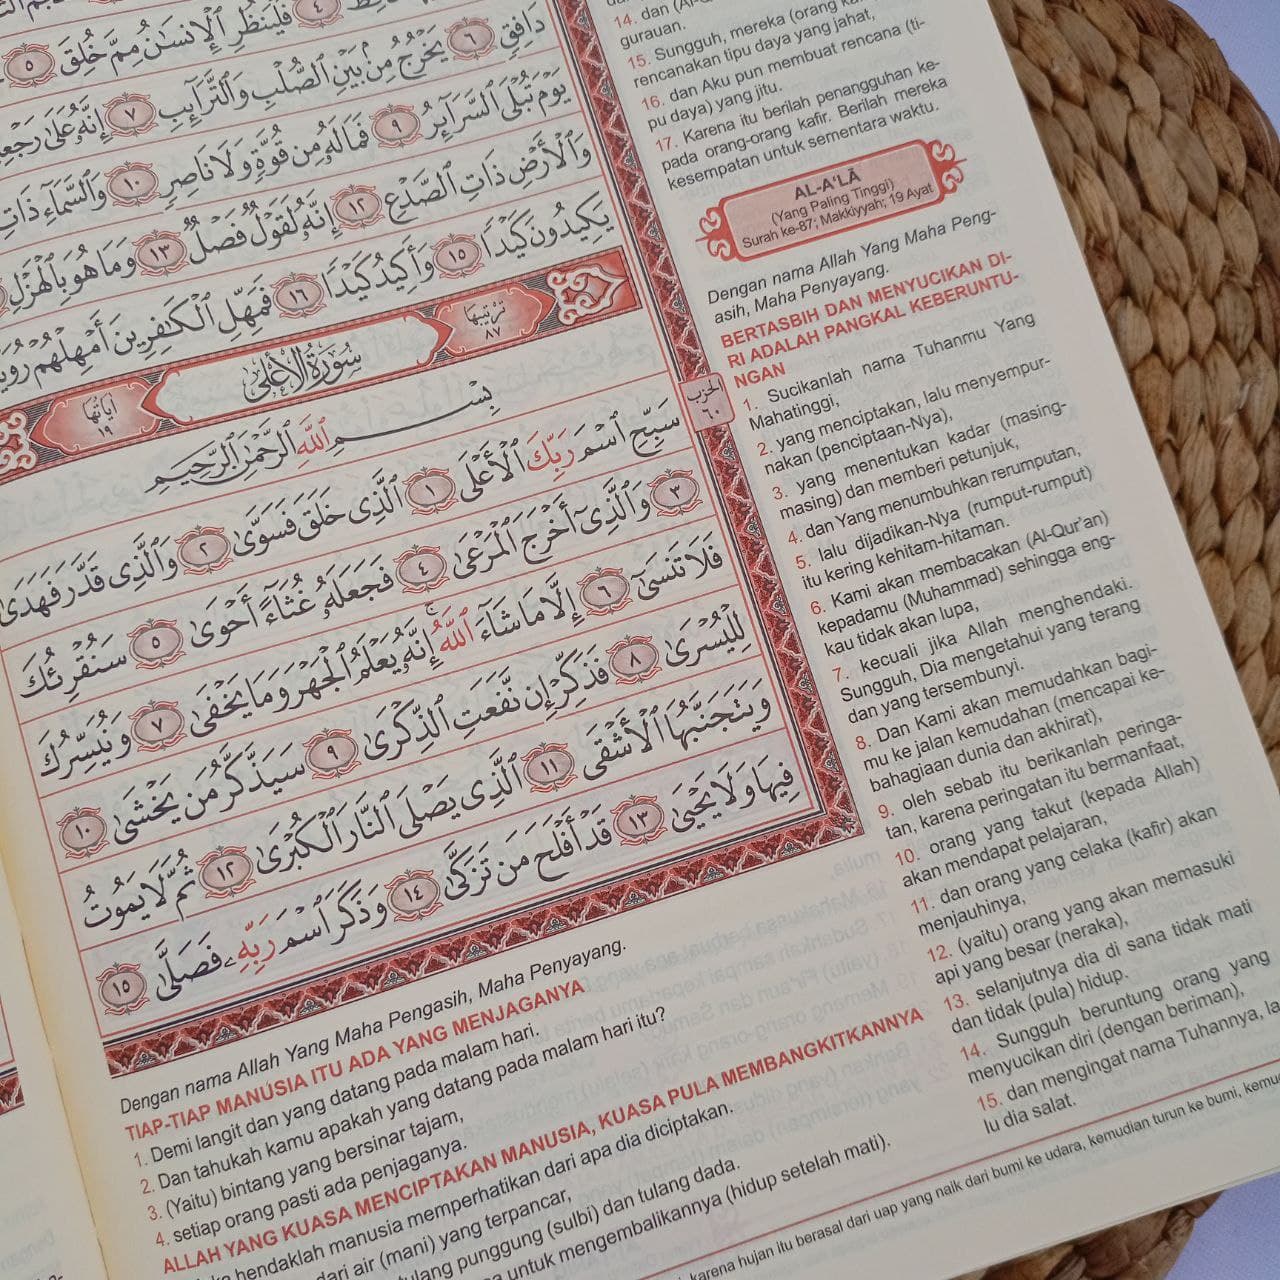 ٤ فَلْيَنظُرِ الْإِنسَانُ مِمَّ خُلِقَ ٥
دَافِقٍ ٦ يَخْرُجُ مِنْ بَيْنِ الصُّلْبِ وَالتَّرَائِبِ ٧ إِنَّهُ عَلَىٰ رَجْعِهِ
يَوْمَ تُبْلَى السَّرَائِرُ ٩ فَمَا لَهُ مِن قُوَّةٍ وَلَا نَاصِرٍ ١٠ وَالسَّمَاءِ ذَاتِ
وَالْأَرْضِ ذَاتِ الصَّدْعِ ١٢ إِنَّهُ لَقَوْلٌ فَصْلٌ ١٣ وَمَا هُوَ بِالْهَزْلِ
يَكِيدُونَ كَيْدًا ١٥ وَأَكِيدُ كَيْدًا ١٦ فَمَهِّلِ الْكَافِرِينَ أَمْهِلْهُمْ
ترتيبها ٨٧
سُورَةُ الْأَعْلَىٰ
آياتها ١٩
بِسْمِ اللَّهِ الرَّحْمَٰنِ الرَّحِيمِ
الحزب ٦٠
سَبِّحِ اسْمَ رَبِّكَ الْأَعْلَى ١ الَّذِي خَلَقَ فَسَوَّىٰ ٢ وَالَّذِي قَدَّرَ فَهَدَىٰ
٣ وَالَّذِي أَخْرَجَ الْمَرْعَىٰ ٤ فَجَعَلَهُ غُثَاءً أَحْوَىٰ ٥ سَنُقْرِئُكَ
فَلَا تَنسَىٰ ٦ إِلَّا مَا شَاءَ اللَّهُ ۚ إِنَّهُ يَعْلَمُ الْجَهْرَ وَمَا يَخْفَىٰ ٧ وَنُيَسِّرُكَ
لِلْيُسْرَىٰ ٨ فَذَكِّرْ إِن نَّفَعَتِ الذِّكْرَىٰ ٩ سَيَذَّكَّرُ مَن يَخْشَىٰ ١٠
وَيَتَجَنَّبُهَا الْأَشْقَى ١١ الَّذِي يَصْلَى النَّارَ الْكُبْرَىٰ ١٢ ثُمَّ لَا يَمُوتُ
فِيهَا وَلَا يَحْيَىٰ ١٣ قَدْ أَفْلَحَ مَن تَزَكَّىٰ ١٤ وَذَكَرَ اسْمَ رَبِّهِ فَصَلَّىٰ ١٥
Dengan nama Allah Yang Maha Pengasih, Maha Penyayang.
TIAP-TIAP MANUSIA ITU ADA YANG MENJAGANYA
1. Demi langit dan yang datang pada malam hari.
2. Dan tahukah kamu apakah yang datang pada malam hari itu?
3. (Yaitu) bintang yang bersinar tajam,
4. setiap orang pasti ada penjaganya.
ALLAH YANG KUASA MENCIPTAKAN MANUSIA, KUASA PULA MEMBANGKITKANNYA
hendaklah manusia memperhatikan dari apa dia diciptakan.
dari air (mani) yang terpancar,
tulang punggung (sulbi) dan tulang dada.
untuk mengembalikannya (hidup setelah mati).
14. dan
gurauan.
15. Sungguh, mereka (orang
rencanakan tipu daya yang jahat,
16. dan Aku pun membuat rencana (ti-
pu daya) yang jitu.
17. Karena itu berilah penangguhan ke-
pada orang-orang kafir. Berilah mereka
kesempatan untuk sementara waktu.
AL-A'LĀ
(Yang Paling Tinggi)
Surah ke-87; Makkiyyah; 19 Ayat
Dengan nama Allah Yang Maha Peng-
asih, Maha Penyayang.
BERTASBIH DAN MENYUCIKAN DI-
RI ADALAH PANGKAL KEBERUNTU-
NGAN
1. Sucikanlah nama Tuhanmu Yang
Mahatinggi,
2. yang menciptakan, lalu menyempur-
nakan (penciptaan-Nya),
3. yang menentukan kadar (masing-
masing) dan memberi petunjuk,
4. dan Yang menumbuhkan rerumputan,
5. lalu dijadikan-Nya (rumput-rumput)
itu kering kehitam-hitaman.
6. Kami akan membacakan (Al-Qur'an)
kepadamu (Muhammad) sehingga eng-
kau tidak akan lupa,
7. kecuali jika Allah menghendaki.
Sungguh, Dia mengetahui yang terang
dan yang tersembunyi.
8. Dan Kami akan memudahkan bagi-
mu ke jalan kemudahan (mencapai ke-
bahagiaan dunia dan akhirat),
9. oleh sebab itu berikanlah peringa-
tan, karena peringatan itu bermanfaat,
10. orang yang takut (kepada Allah)
akan mendapat pelajaran,
11. dan orang yang celaka (kafir) akan
menjauhinya,
12. (yaitu) orang yang akan memasuki
api yang besar (neraka),
13. selanjutnya dia di sana tidak mati
dan tidak (pula) hidup.
14. Sungguh beruntung orang yang
menyucikan diri (dengan beriman),
15. dan mengingat nama Tuhannya, la-
lu dia salat.
karena hujan itu berasal dari uap yang naik dari bumi ke udara, kemudian turun ke bumi,